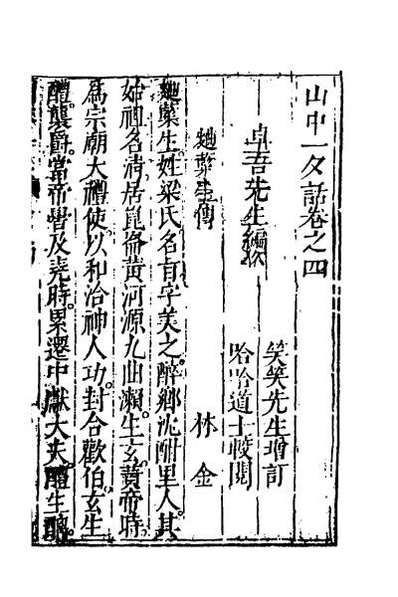 山中一夕話卷之四
卓吾先生編次
笑笑先生增訂
哈哈道士較閱
麯蘗生傳
林金
麯蘗生姓梁氏名盲字美之醉鄉沉酣里人其
始祖名清居崑崙黃河源九曲瀨生玄黃帝時
爲宗朝大禮使以和洽神人功封合歡伯玄生
醴襲爵當帝嚳及堯時累遷中獻大夫醴生醲